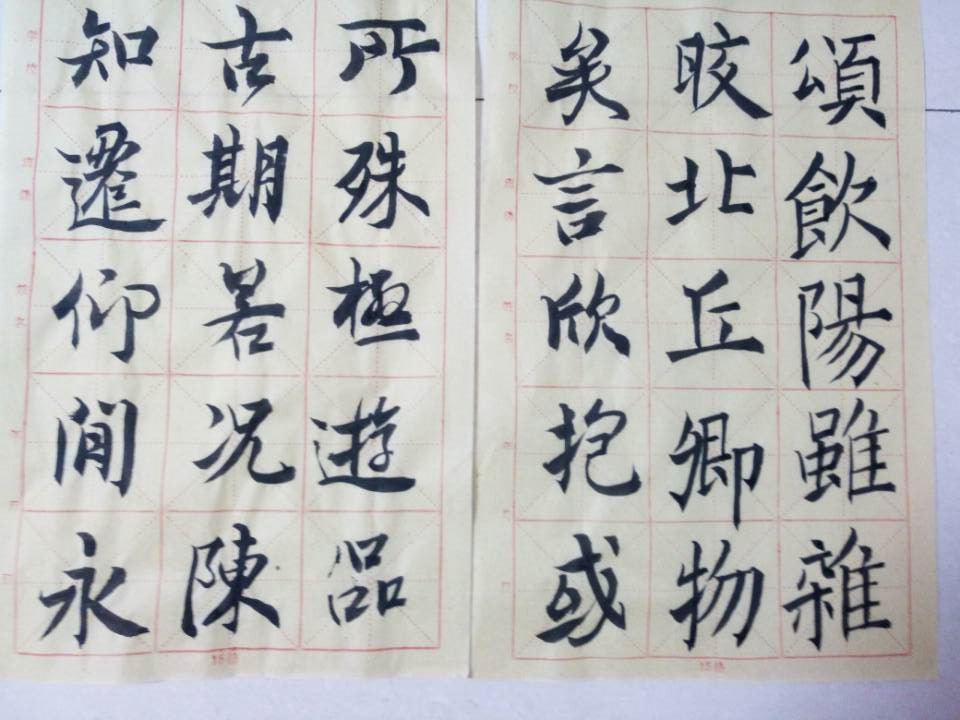 頌飲陽雖雜
晈北丘卿物
矣言欣抱或
所殊極遊品
古期若况陳
知遷仰間永